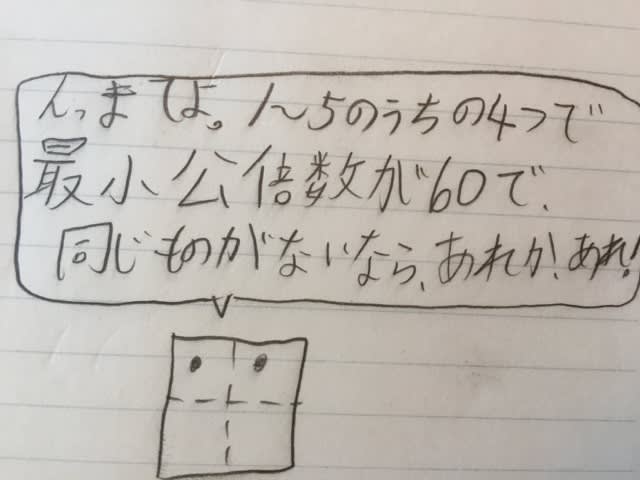 んっまてよ。1〜5のうちの4つで
最小公倍数が60で、
同じものがないなら、あれか、あれ!